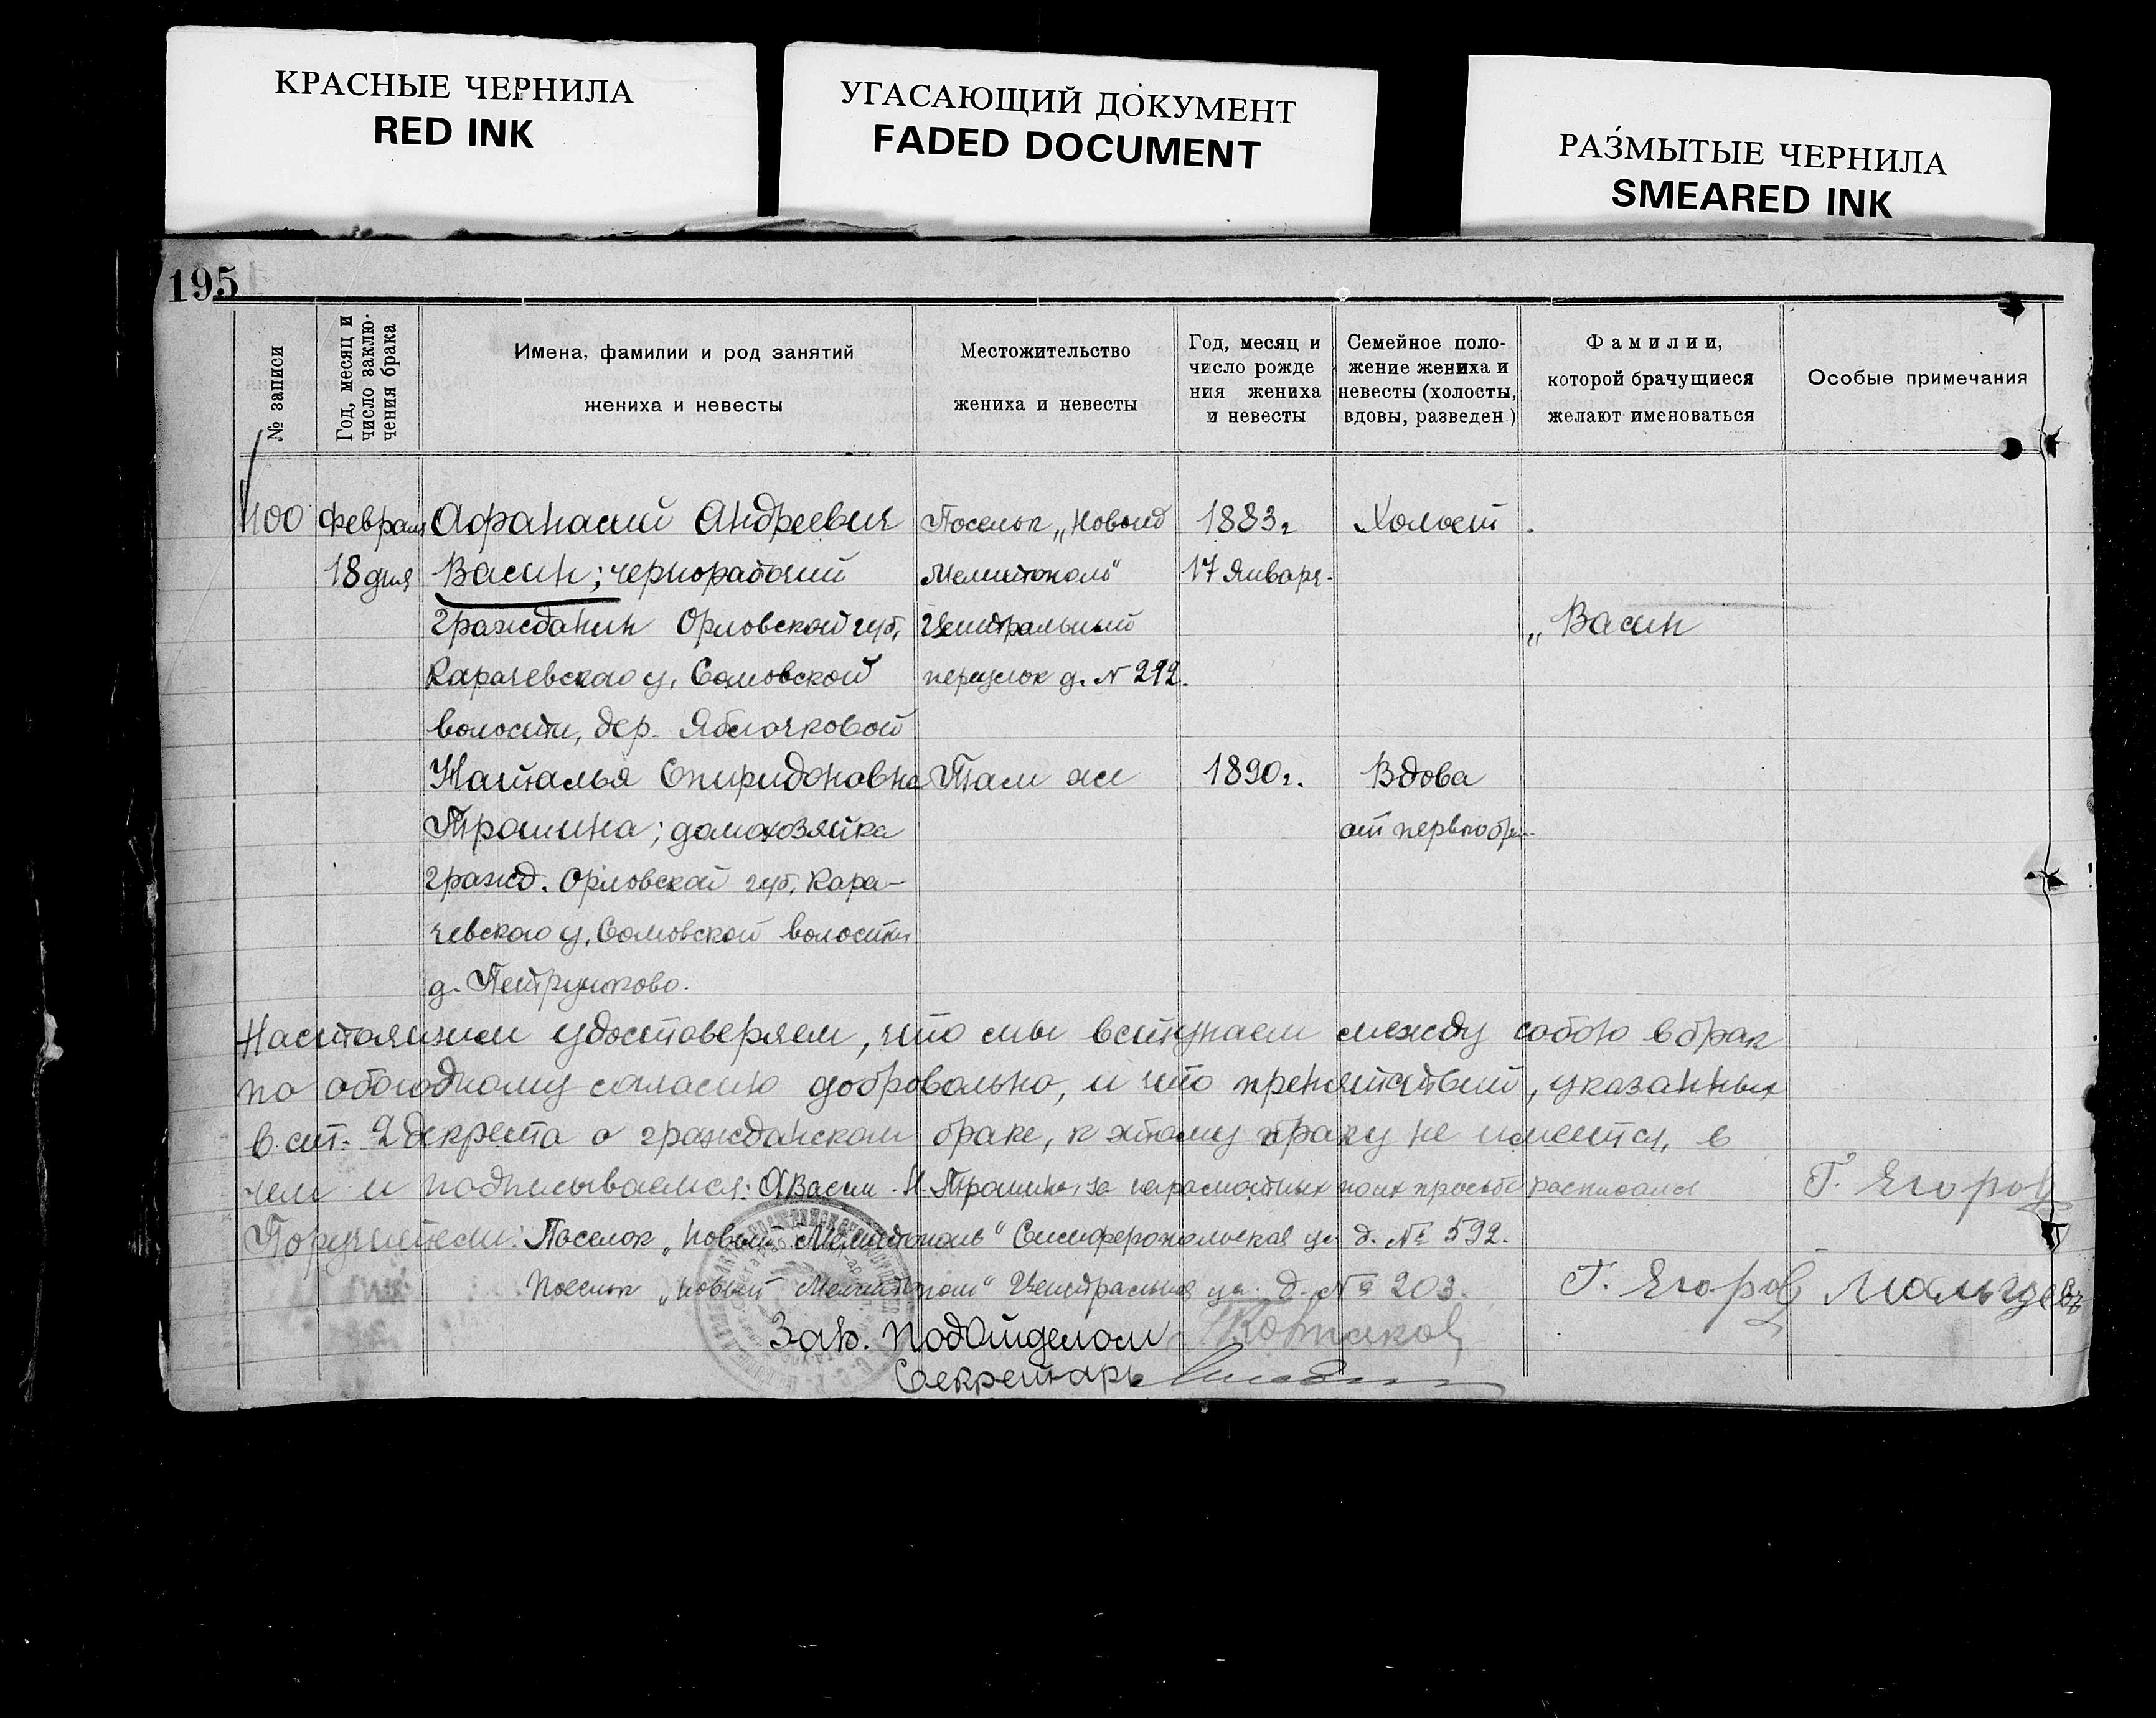 КРАСНЫЕ ЧЕРНИЛА
RED INK
УГАСАЮЩИЙ ДОКУМЕНТ
FADED DOCUMENT
РАЗМЫТЫЕ ЧЕРНИЛА
SMEARED INK
195
№ записи
Год, месяц и
число заклю-
чения брака
Имена, фамилии и род занятий
жениха и невесты
Местожительство
жениха и невесты
Год, месяц и
число рожде
ния жениха
и невесты
Семейное поло-
жение жениха и
невесты (холосты,
вдовы, разведен.)
Фамилии,
которой брачущиеся
желают именоваться
Особые примечания
100
Февраля
18 дня
Афанасий Андреевич
Васин; чернорабочий
гражданин Орловской губ,
Карачевскаго у, Сомовской
волости, дер. Яблочковой
Поселок „Новый
Мелитополь"
Центральный
переулок д. № 212.
1883г
17 Января.
Холост
„Васин
Наталья Спиридоновна
Трошина; домохозяйка
гражд. Орловской губ, Кара-
чевскаго у, Сомовской волости
д. Петрушково.
Там же
1890г.
Вдова
от перваго бра-
Настоящим удостоверяем, что мы вступаем между собою в брак
по обоюдному согласию добровольно, и что препятствий, указанных
в ст. 2 декрета о гражданском браке, к этому браку не имеется, в
чем и подписываемся: А Васин. Н Трошина, за неграмотных по их просьбе расписался Г. Егоров
Поручители: Поселок „Новый Мелитополь" Симферопольская ул д. № 592.
Поселок „Новый Мелитополь" Центральная ул. д. № 203. Г. Егоров Мальцевъ
Зав. ПодОтделом
Секретарь